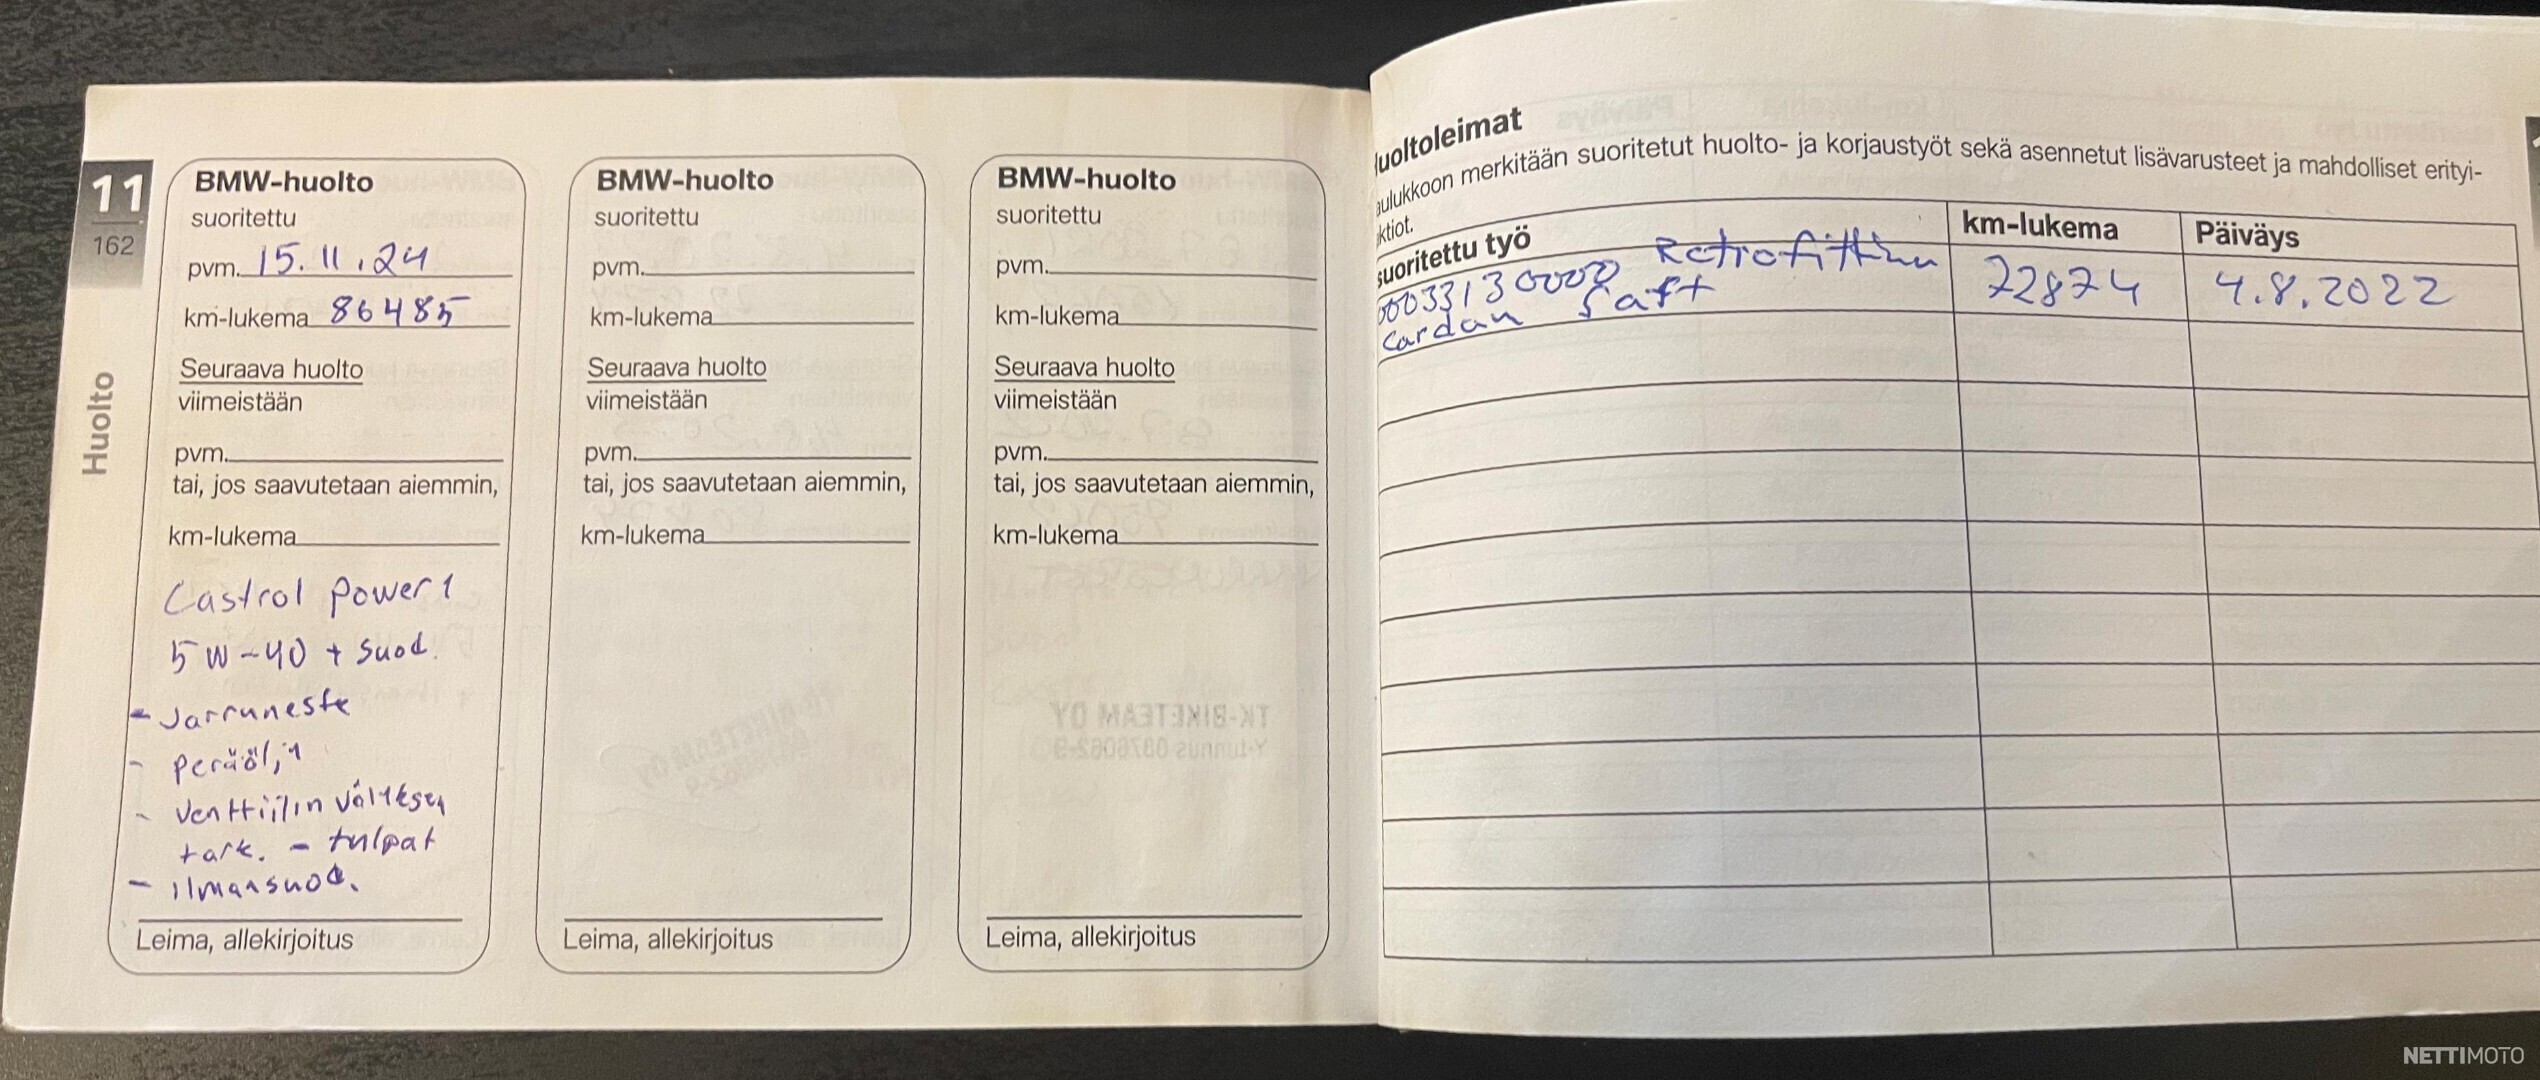 11
162
Huolto
BMW-huolto
suoritettu
pvm. 15.11.24
km-lukema 86485
Seuraava huolto
viimeistään
pvm.
tai, jos saavutetaan aiemmin,
km-lukema
Castrol Power 1
5W-40 + suod.
- Jarruneste
- peräöljy
- Venttiilin välyksen
tark. - tulpat
- ilmansuod.
Leima, allekirjoitus
BMW-huolto
suoritettu
pvm.
km-lukema
Seuraava huolto
viimeistään
pvm.
tai, jos saavutetaan aiemmin,
km-lukema
Leima, allekirjoitus
BMW-huolto
suoritettu
pvm.
km-lukema
Seuraava huolto
viimeistään
pvm.
tai, jos saavutetaan aiemmin,
km-lukema
TK-BIKETEAM OY
Leima, allekirjoitus
uoltoleimat
aulukkoon merkitään suoritetut huolto- ja korjaustyöt sekä asennetut lisävarusteet ja mahdolliset erityi-
ktiot.
suoritettu työ km-lukema Päiväys
0033130000 Retrofitting 72874 4.8.2022
Cardan saft
NETTIMOTO